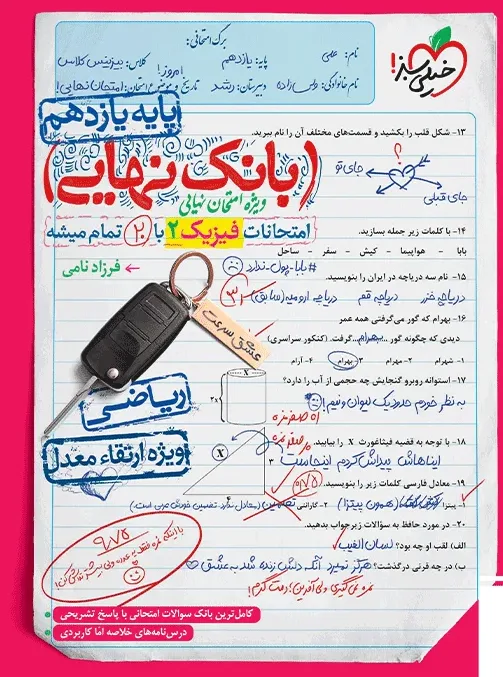 خیلی سبز!
برگ امتحانی:
نام: علی
پایه: یازدهم
کلاس: بیزینس کلاس
امروز!
نام خانوادگی:
دبیرستان: رشد
تاریخ و موضوع امتحان: امتحان نهایی!
پایه یازدهم
(بانک نهایی)
ویژه امتحان نهایی
امتحانات فیزیک ۲ با ۲۰ تمام میشه
فرزاد نامی
عشق سرعت
ریاضی
ویژه ارتقاء معدل
۱۳- شکل قلب را بکشید و قسمت‌های مختلف آن را نام ببرید.
؟
جای تو
جای قبلی
۱۴- با کلمات زیر جمله بسازید.
بابا - هواپیما - کیش - سفر - ساحل
#بابا-پول-ندارد
۱۵- نام سه دریاچه در ایران را بنویسید.
دریاچه خزر دریاچه قم دریاچه ارومیه (سابق)
۱۶- بهرام که گور می‌گرفتی همه عمر
دیدی که چگونه گور ...بهرام... گرفت. (کنکور سراسری)
۱- شهرام ۲- مهرام ۳- بهرام ۴- آرام
۱۷- استوانه روبرو گنجایش چه حجمی از آب را دارد؟
به نظر خودم حدود یک لیوان و نیم!
X
2x
۱۸- با توجه به قضیه فیثاغورث X را بیابید.
ایناهاش پیداش کردم اینجاست
X
۳
۴
۱۹- معادل فارسی کلمات زیر را بنویسید.
۰/۷۵
۱- پیتزا (همون پیتزا)
۲- گارانتی
۲۰- در مورد حافظ به سؤالات زیر جواب بدهید.
الف) لقب او چه بود؟ لسان الغیب
ب) در چه قرنی درگذشت؟ هرگز نمیرد آنکه دلش زنده شد به عشق
نمره نمی‌گیری ولی آفرین؛ دمت گرم!
۹/۷۵
کامل‌ترین بانک سوالات امتحانی با پاسخ تشریحی
درس‌نامه‌های خلاصه اما کاربردی